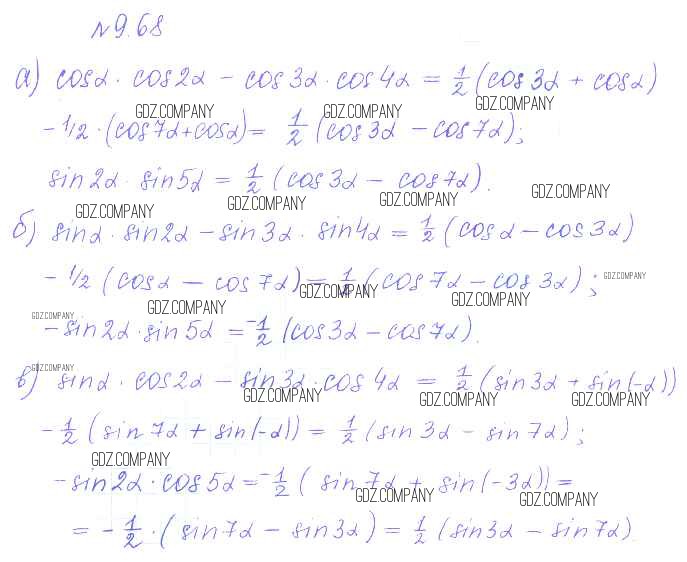 №9.68
а) cosα · cos2α − cos3α · cos4α = 1/2 (cos3α + cosα)
− 1/2 · (cos7α + cosα) = 1/2 (cos3α − cos7α);
sin2α · sin5α = 1/2 (cos3α − cos7α).
б) sinα · sin2α − sin3α · sin4α = 1/2 (cosα − cos3α)
− 1/2 (cosα − cos7α) = 1/2 (cos7α − cos3α);
− sin2α · sin5α = −1/2 (cos3α − cos7α).
в) sinα · cos2α − sin3α · cos4α = 1/2 (sin3α + sin(−α))
− 1/2 (sin7α + sin(−α)) = 1/2 (sin3α − sin7α);
− sin2α · cos5α = −1/2 (sin7α + sin(−3α)) =
= − 1/2 · (sin7α − sin3α) = 1/2 (sin3α − sin7α)
GDZ.COMPANY GDZ.COMPANY GDZ.COMPANY
GDZ.COMPANY GDZ.COMPANY GDZ.COMPANY GDZ.COMPANY
GDZ.COMPANY GDZ.COMPANY GDZ.COMPANY GDZ.COMPANY
GDZ.COMPANY
GDZ.COMPANY GDZ.COMPANY GDZ.COMPANY GDZ.COMPANY
GDZ.COMPANY GDZ.COMPANY GDZ.COMPANY